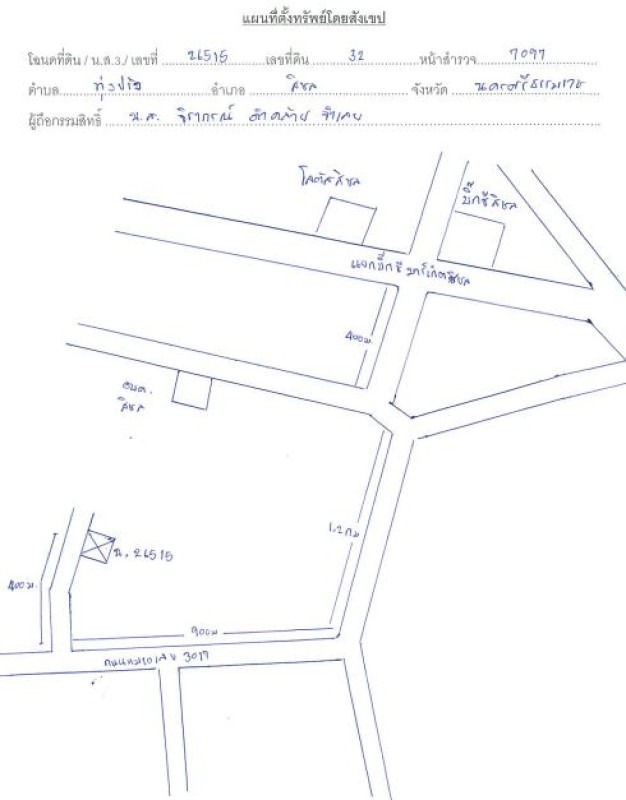 แผนที่ตั้งทรัพย์โดยสังเขป
โฉนดที่ดิน / น.ส.3./ เลขที่ 26515 เลขที่ดิน 32 หน้าสำรวจ 7097
ตำบล ทุ่งปรัง อำเภอ สิชล จังหวัด นครศรีธรรมราช
ผู้ถือกรรมสิทธิ์ น.ส. จิราภรณ์
โลตัสสิชล
บิ๊กซีสิชล
แยกบิ๊กซีมาร์เก็ตสิชล
400ม.
อบต.
สิชล
1.2กม
น. 26515
400ม.
900ม
ถนนหมายเลข 3017